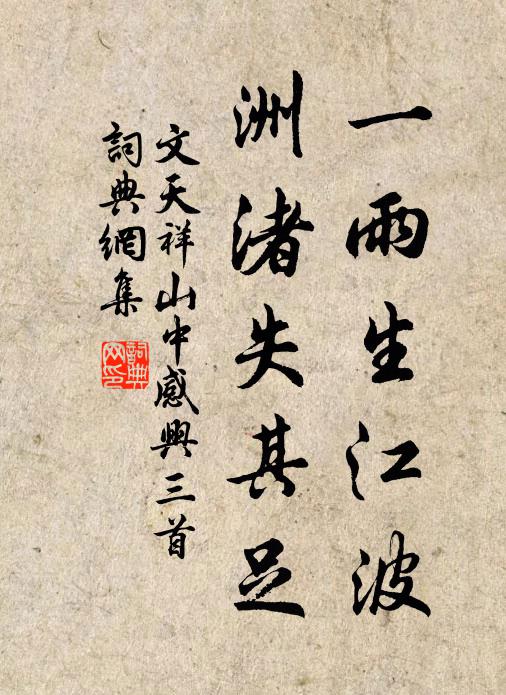 一雨生江波
洲渚失其足
文天祥山中感興三首
詞典網集
詞典网印